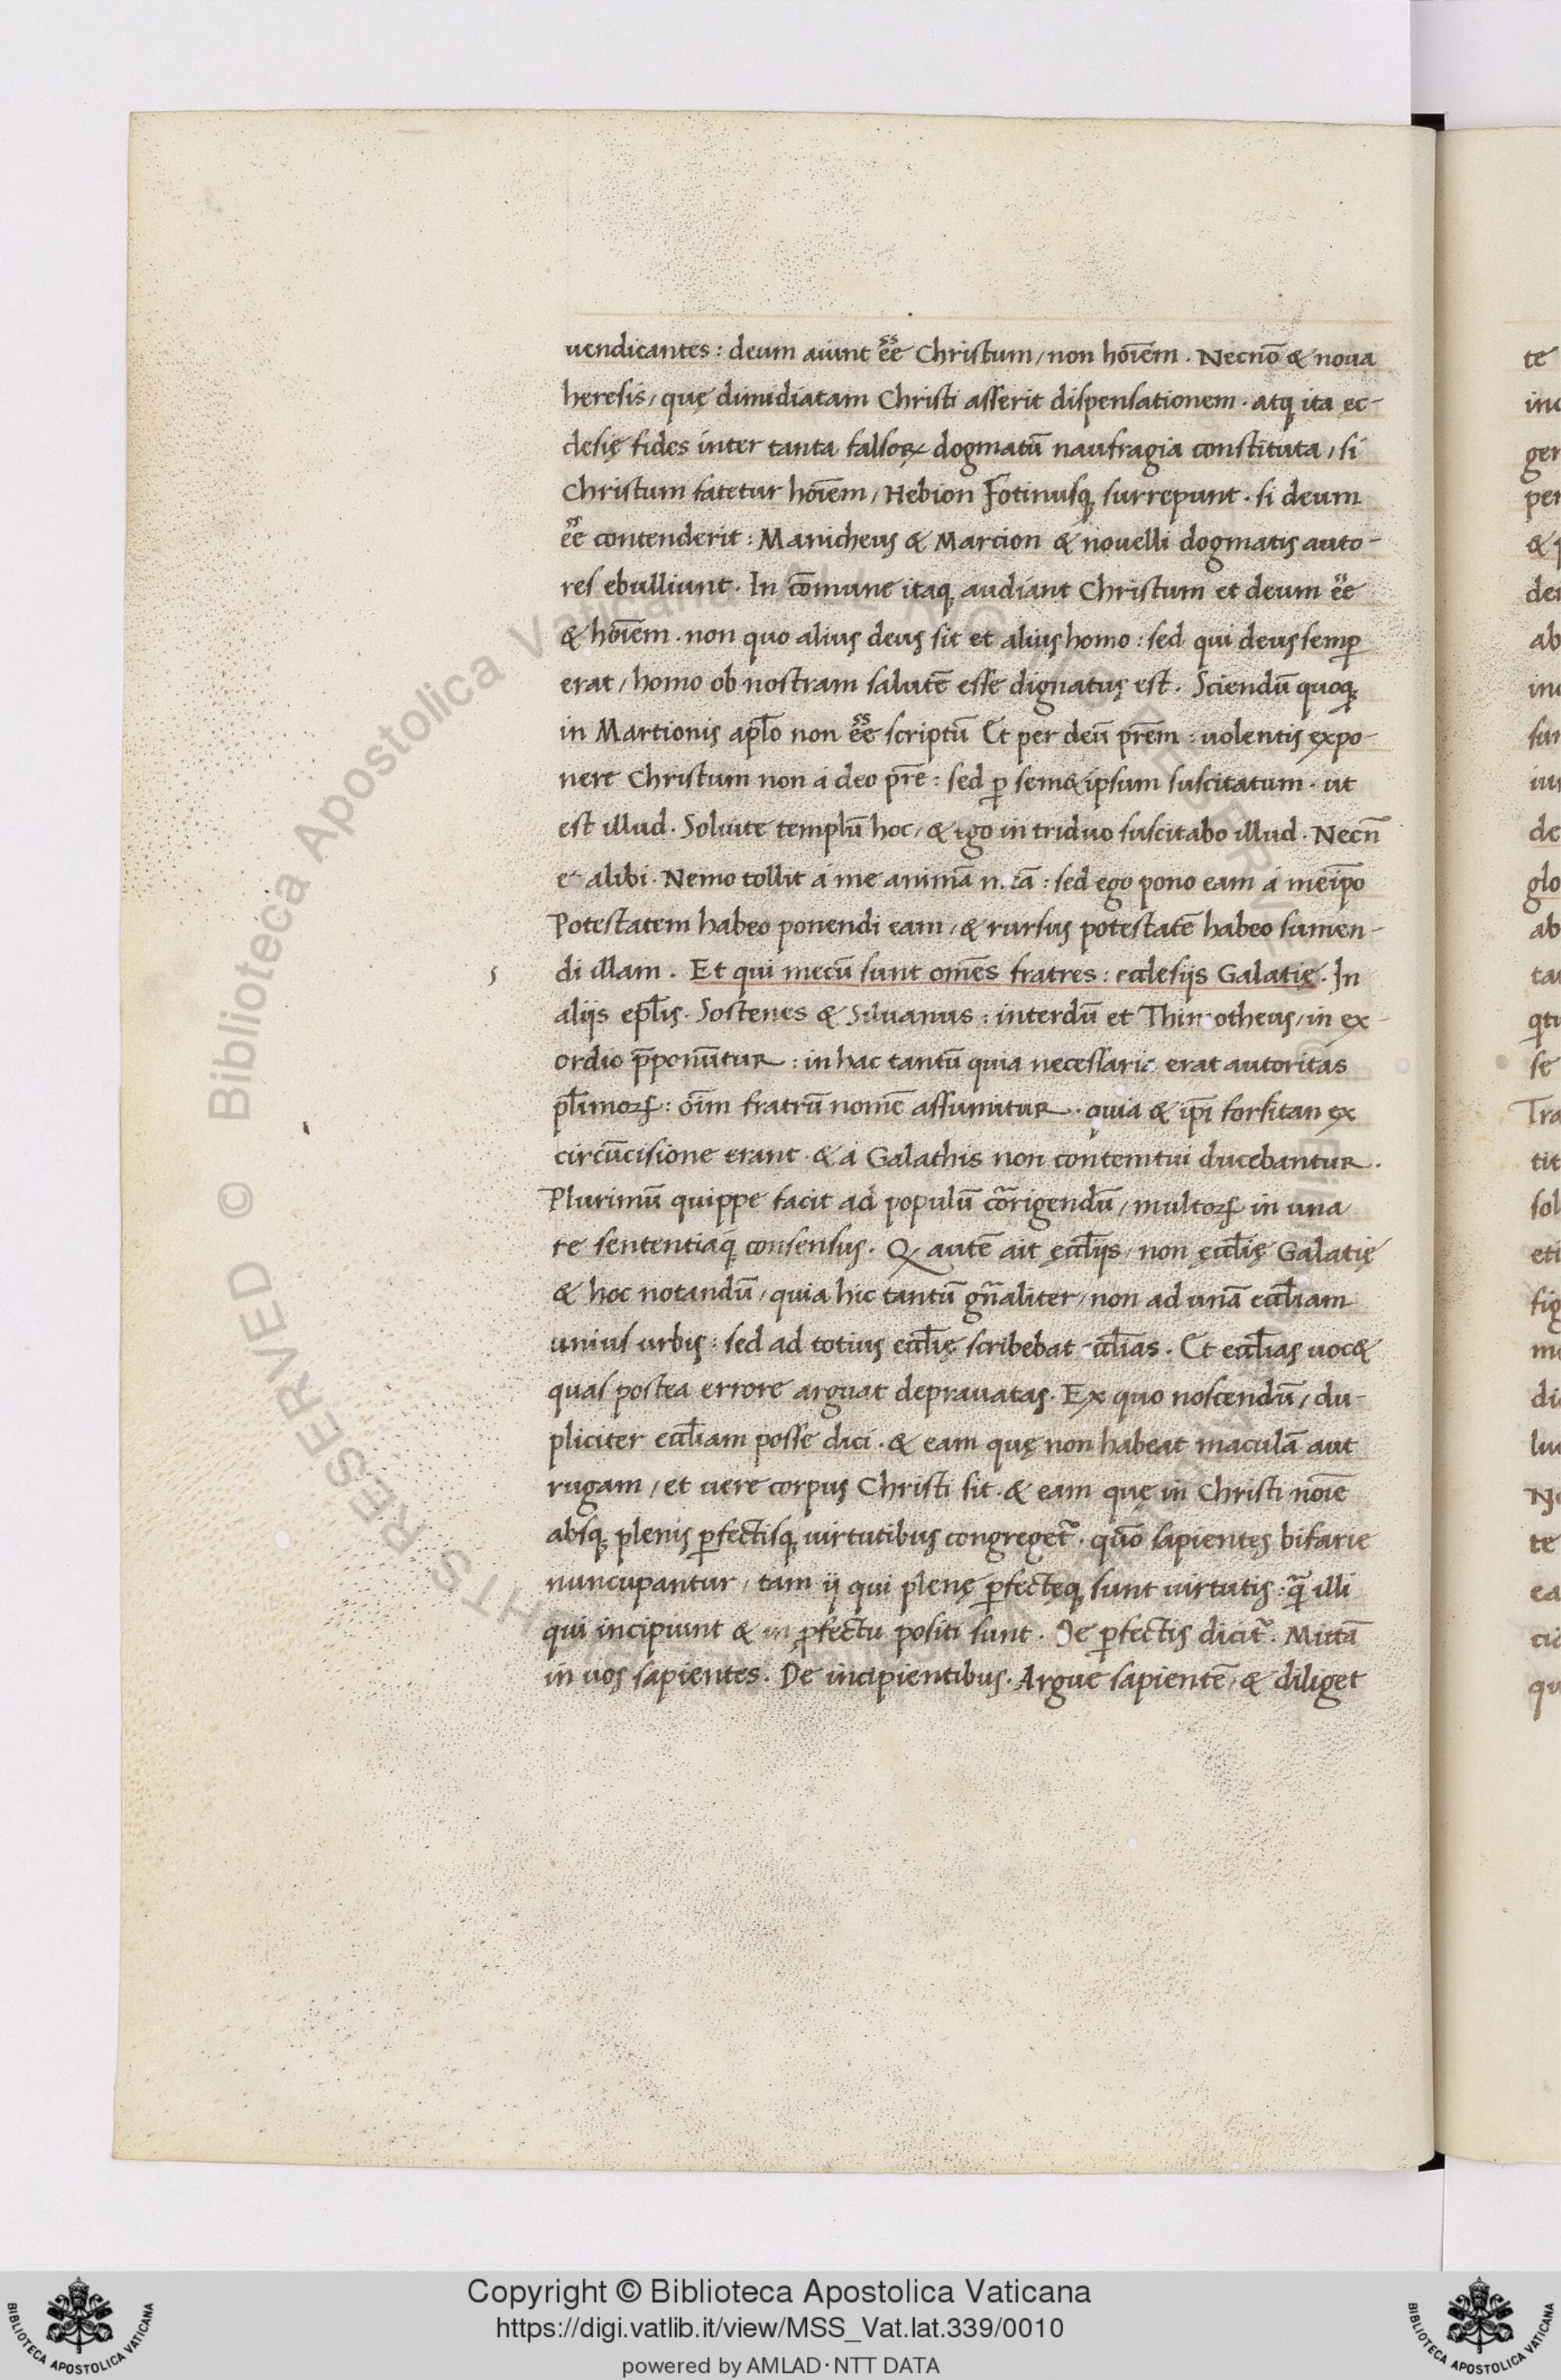 uendicantes: deum aiunt eeᷤ Christum / non hoiēm. Necnō & noua
heresis, quę dimidiatam Christi asserit dispensationem. atq ita ec-
clesię fides inter tanta falsoꝝ dogmatū naufragia constituta, si
Christum fatetur hoiēm, Hebion Fotinusq surrepunt. si deum
eeᷤ contenderit: Manicheus & Marcion & nouelli dogmatis auto-
res ebulliunt. In cōmune itaq audiant Christum et deum eeᷤ
& hoiēm. non quo alius deus sit et alius homo: sed qui deus semꝑ
erat, homo ob nostram salutē esse dignatus est. Sciendū quoq
in Martionis aplō non eeᷤ scriptū Et per deū prēm: uolentis expo-
nere Christum non a deo prē: sed ꝑ sem&ipsum suscitatum. ut
est illud. Soluite templū hoc, & ego in triduo suscitabo illud. Necn̄
et alibi. Nemo tollit á me animā: sed ego pono eam á meip̄o
Potestatem habeo ponendi eam, & rursus potestatē habeo sumen-
5 di illam. Et qui mecū sunt omēs fratres: ecclesijs Galatię. In
alijs eplīs. Sostenes & Siluanus: interdū et Thimotheus, in ex-
ordio p̄ponūtur: in hac tantū quia necessaria erat autoritas
plīmoꝝ: oīm fratrū nomē assumitur. quia & ip̄i forsitan ex
circūcisione erant. & á Galathis non contemtui ducebantur.
Plurimū quippe facit ad populū cōrigendū, multoꝝ in una
re sententiaq consensus. Q autē ait ęccl̄ijs, non ęccl̄ię Galatię
& hoc notandū, quia hic tantū gn̄aliter, non ad unā eccl̄iam
unius urbis: sed ad totius eccl̄ię scribebat eccl̄ias. Et eccl̄ias uoc&
quas postea errore arguat deprauatas. Ex quo noscendū, du-
pliciter eccl̄iam posse dici. & eam quę non habeat maculā aut
rugam, et uere corpus Christi sit. & eam quę in Christi noīe
absq plenis ꝑfectisq uirtutibus congreget᷑. quō sapientes bifarie
nuncupantur, tam ij qui plenę ꝑfectęq sunt uirtutis. qᷓ illi
qui incipiunt & in ꝓfectu positi sunt. De ꝑfectis dicit᷑. Mittā
in uos sapientes. De incipientibus. Argue sapientē, & diliget
te
inc
ger
per
&
de
ab
inc
sun
iu
de
glo
ab
ta
qti
se
Tra
tit
sol
eti
fig
mu
di
lu
te
ea
qu
RESERVED © Biblioteca Apostolica Vaticana
BIBLIOTECA APOSTOLICA VATICANA
Copyright © Biblioteca Apostolica Vaticana
https://digi.vatlib.it/view/MSS_Vat.lat.339/0010
powered by AMLAD·NTT DATA
BIBLIOTECA APOSTOLICA VATICANA